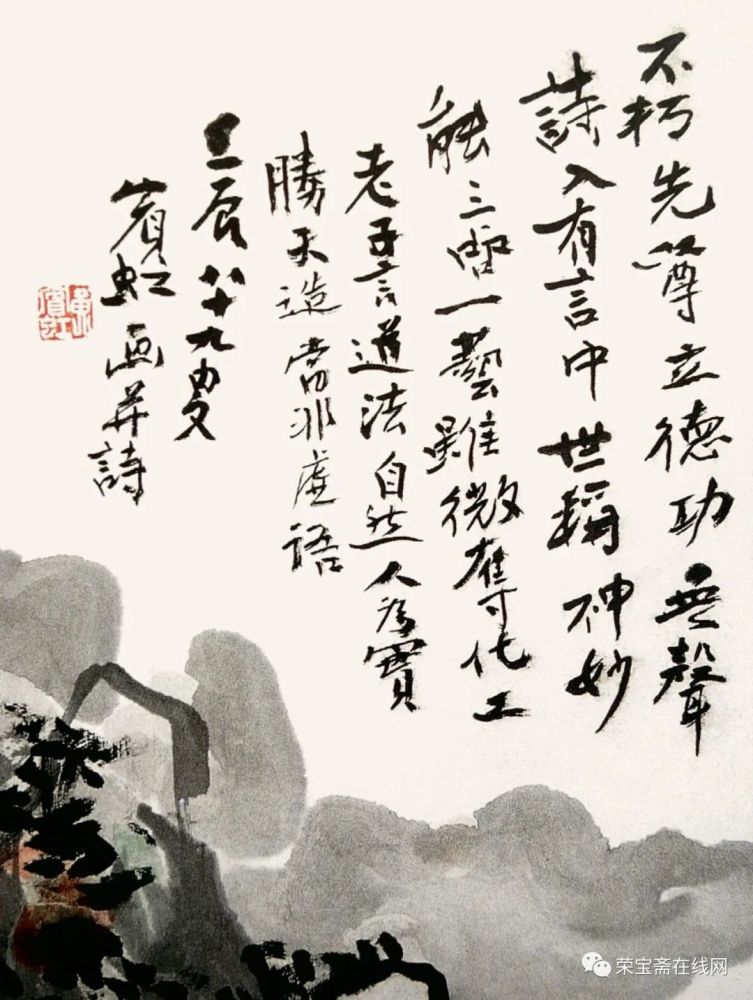 不朽先尊立德功無聲
詩入有言中世稱神妙
能三品一藝雖微奪化工
老子言道法自然人為實
勝天造當非虛語
壬辰八十九叟
賓虹画并詩
黃賓虹
荣宝斋在线网